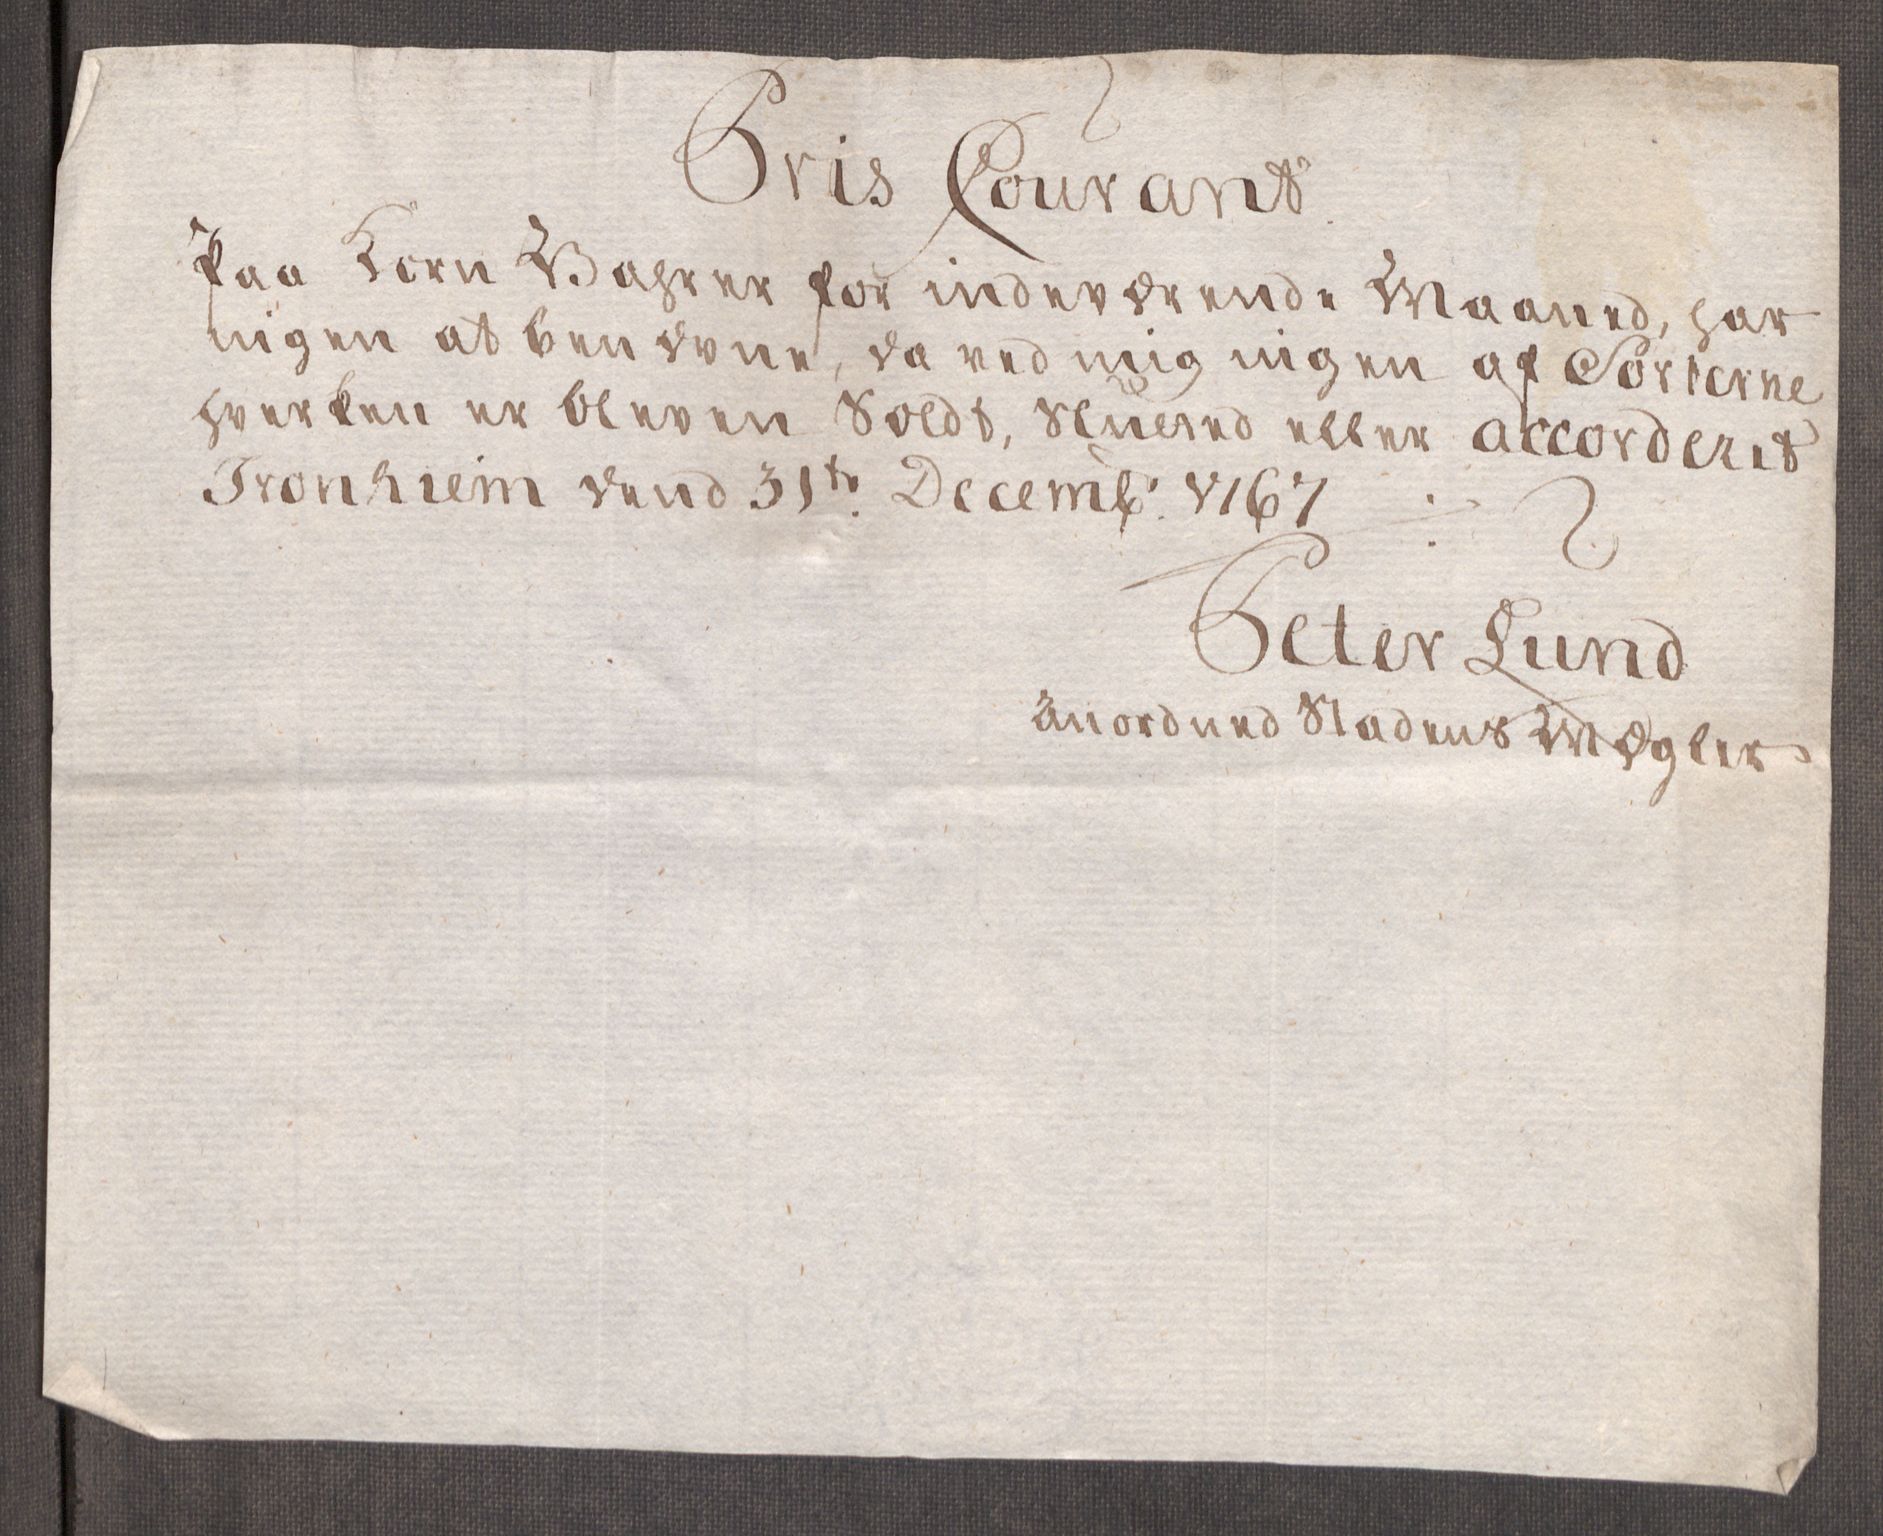 Pris Courant
Paa Korn Wahrer for indeværende Maaned, har
ingen at ben dvne, da ved mig ingen af Sorterne
hverken er bleven Soldt, Slutted eller accorderet
Tronhiem dend 31te Decembr. 1767
Peter Lund
Anordned Stadens Mægler